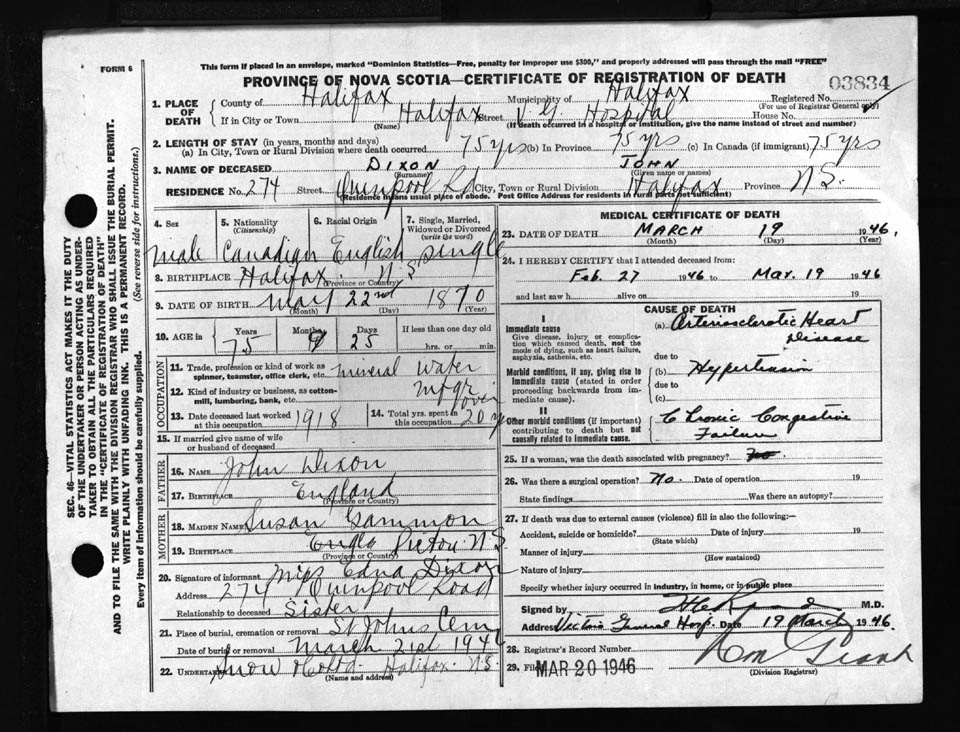 FORM 6
This form if placed in an envelope, marked "Dominion Statistics—Free, penalty for improper use $300," and properly addressed will pass through the mail "FREE"
PROVINCE OF NOVA SCOTIA—CERTIFICATE OF REGISTRATION OF DEATH
03834
1. PLACE OF DEATH County of Halifax Municipality of Halifax Registered No.
(For use of Registrar General only)
If in City or Town Halifax Street V. G. Hospital House No.
(Name) (If death occurred in a hospital or institution, give the name instead of street and number)
2. LENGTH OF STAY (in years, months and days)
(a) In City, Town or Rural Division where death occurred 75 yrs (b) In Province 75 yrs (c) In Canada (if immigrant) 75 yrs
3. NAME OF DECEASED DIXON JOHN
(Surname) (Given name or names)
RESIDENCE No. 274 Street Quinpool Rd City, Town or Rural Division Halifax Province N.S.
(Residence means usual place of abode. Post Office Address for residents in rural parts not sufficient)
4. Sex 5. Nationality (Citizenship) 6. Racial Origin 7. Single, Married, Widowed or Divorced (write the word)
male Canadian English Single
8. BIRTHPLACE Halifax N.S
(Province or Country)
9. DATE OF BIRTH May 22nd 1870
(Month) (Day) (Year)
10. AGE in Years Months Days If less than one day old
75 9 25 hrs. or min.
OCCUPATION
11. Trade, profession or kind of work as spinner, teamster, office clerk, etc. mineral water
12. Kind of industry or business, as cotton-mill, lumbering, bank, etc. mfgr
13. Date deceased last worked at this occupation 1918 14. Total yrs. spent in this occupation over 20 yrs
15. If married give name of wife or husband of deceased
FATHER
16. NAME John Dixon
17. BIRTHPLACE England
(Province or Country)
MOTHER
18. MAIDEN NAME Susan Gammon
19. BIRTHPLACE Pictou N.S.
(Province or Country)
20. Signature of informant Miss Edna Dixon
Address 274 Quinpool Road
Relationship to deceased Sister
21. Place of burial, cremation or removal St Johns Cem
Date of burial or removal March 21st 1946
22. UNDERTAKER Snow Halifax N.S.
(Name and address)
MEDICAL CERTIFICATE OF DEATH
23. DATE OF DEATH MARCH 19 1946.
(Month) (Day) (Year)
24. I HEREBY CERTIFY that I attended deceased from:
Feb. 27 1946 to Mar. 19 1946
and last saw h alive on 19
CAUSE OF DEATH
I
Immediate cause
Give disease, injury or complication which caused death, not the mode of dying, such as heart failure, asphyxia, asthenia, etc.
(a) Arteriosclerotic Heart Disease
due to
Morbid conditions, if any, giving rise to immediate cause (stated in order proceeding backwards from immediate cause).
(b) Hypertension
due to
(c)
II
Other morbid conditions (if important) contributing to death but not causally related to immediate cause.
Chronic Congestive Failure
25. If a woman, was the death associated with pregnancy? No
26. Was there a surgical operation? No. Date of operation 19
State findings Was there an autopsy?
27. If death was due to external causes (violence) fill in also the following:—
Accident, suicide or homicide? Date of injury 19
(State which)
Manner of injury
(How sustained)
Nature of injury
Specify whether injury occurred in industry, in home, or in public place
Signed by M.D.
Address Victoria General Hosp. Date 19 March 1946.
28. Registrar's Record Number
29. Filed MAR 20 1946
(Division Registrar)
SEC. 46—VITAL STATISTICS ACT MAKES IT THE DUTY OF THE UNDERTAKER OR PERSON ACTING AS UNDERTAKER TO OBTAIN ALL THE PARTICULARS REQUIRED IN THE "CERTIFICATE OF REGISTRATION OF DEATH" AND TO FILE THE SAME WITH THE DIVISION REGISTRAR WHO SHALL ISSUE THE BURIAL PERMIT.
WRITE PLAINLY WITH UNFADING INK. THIS IS A PERMANENT RECORD.
Every item of information should be carefully supplied. (See reverse side for instructions.)